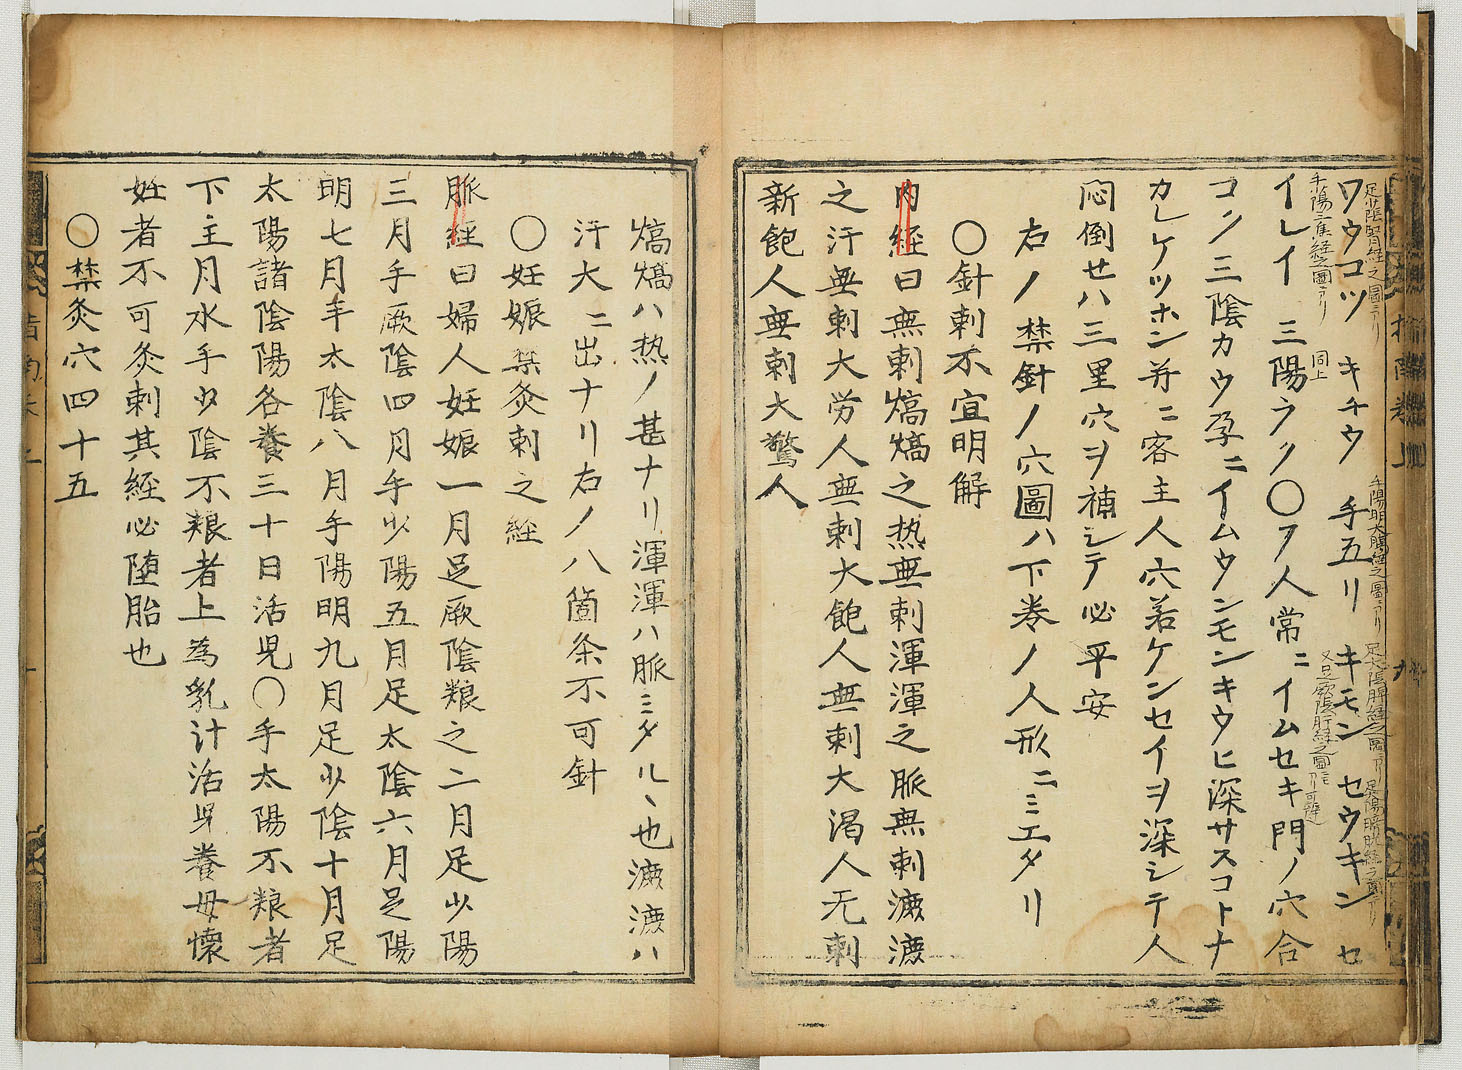 ワウコツ キチウ 手五リ キモン セウキン セ
イレイ 三陽ラク〇ヲ人常ニイムセキ門ノ穴合
コン三陰カウ孕ニイムウンモンキウヒ深サスコトナ
カレケツホン并ニ客主人穴若ケンセイヲ深シテ人
悶倒セハ三里穴ヲ補シテ必平安
右ノ禁針ノ穴圖ハ下巻ノ人形ニミエタリ
〇針刺不宜明解
内経曰無刺熇熇之热無刺渾渾之脈無刺漉漉
之汗無刺大労人無刺大飽人無刺大渴人无刺
新飽人無刺大驚人
熇熇ハ热ノ甚ナリ渾渾ハ脈ミタルヽ也漉漉ハ
汗大ニ出ナリ右ノ八箇条不可針
〇妊娠禁灸刺之経
脈経曰婦人妊娠一月足厥陰粮之二月足少陽
三月手厥陰四月手少陽五月足太陰六月足陽
明七月手太陰八月手陽明九月足少陰十月足
太陽諸陰陽各養三十日活児〇手太陽不粮者
下主月水手少陰不粮者上為乳汁活身養母懐
妊者不可灸刺其経必堕胎也
〇禁灸穴四十五
足少陰腎経之圖ニアリ
手陽三焦経之圖ニアリ 同上
手陽明大腸経之圖ニアリ
足太陰脾経之圖ニアリ
又足厥陰肝経之圖ニモアリ